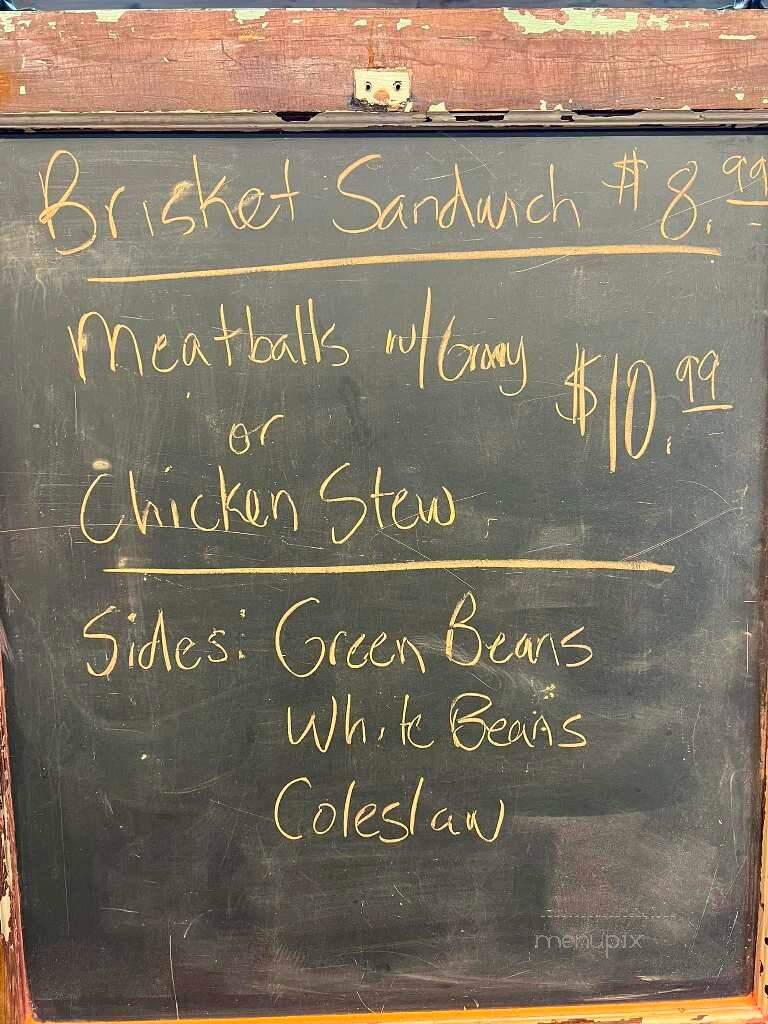 Brisket Sandwich $8.99
Meatballs w/Gravy $10.99
or
Chicken Stew
Sides: Green Beans
White Beans
Coleslaw
menupix